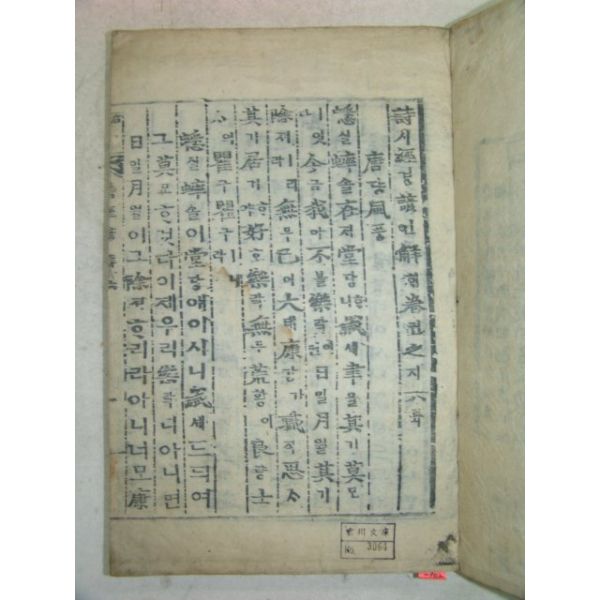 詩시經경諺언解ᄒᆡ卷권之지六륙
唐당風풍
蟋실蟀솔在ᄌᆡ堂당ᄒᆞ니歲셰聿율其기莫모
ㅣ엇다今금我아不블樂락이면日일月월其기
除져ᄒᆞ리라無무已이大태康강가職직思ᄉᆞ
其기居거ᄒᆞ야好호樂락無무荒황이良량士
ᄉᆞ의瞿구瞿구ㅣ니라
蟋실蟀솔이堂당애이시니歲셰드듸여
그莫모ᄒᆞ엿다이제우리樂락디아니면
日일月월이그除져ᄒᆞ리라아니너모康
文庫
No. 3064